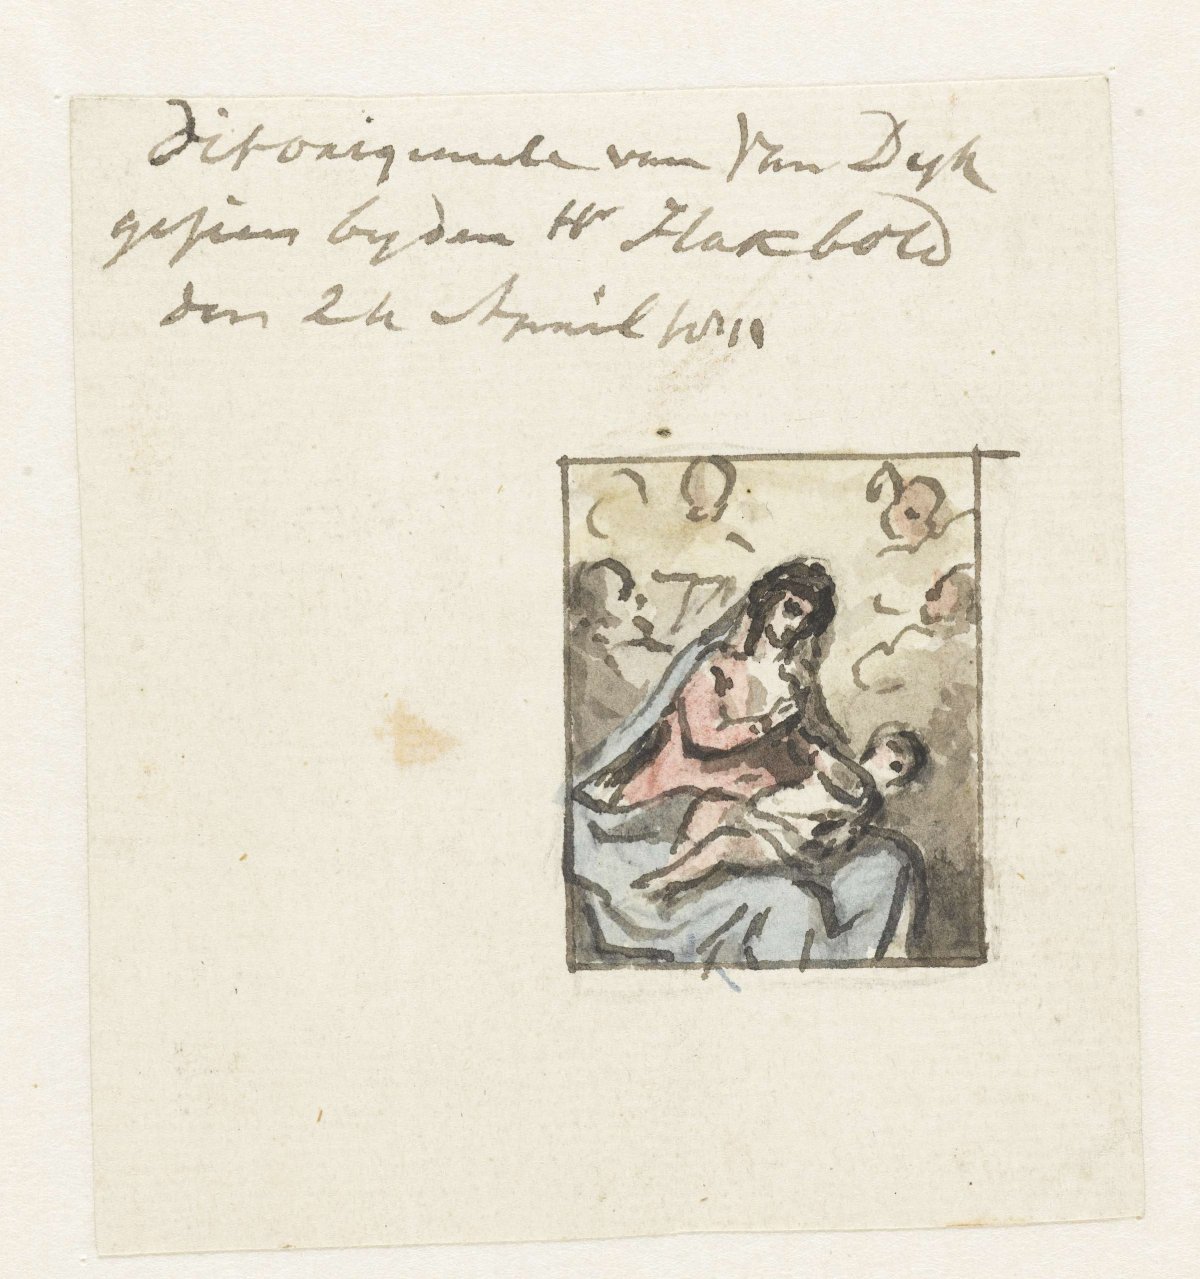 dit origineele van Van Dyk
gesien by den Hr Hakbold
den 24 April